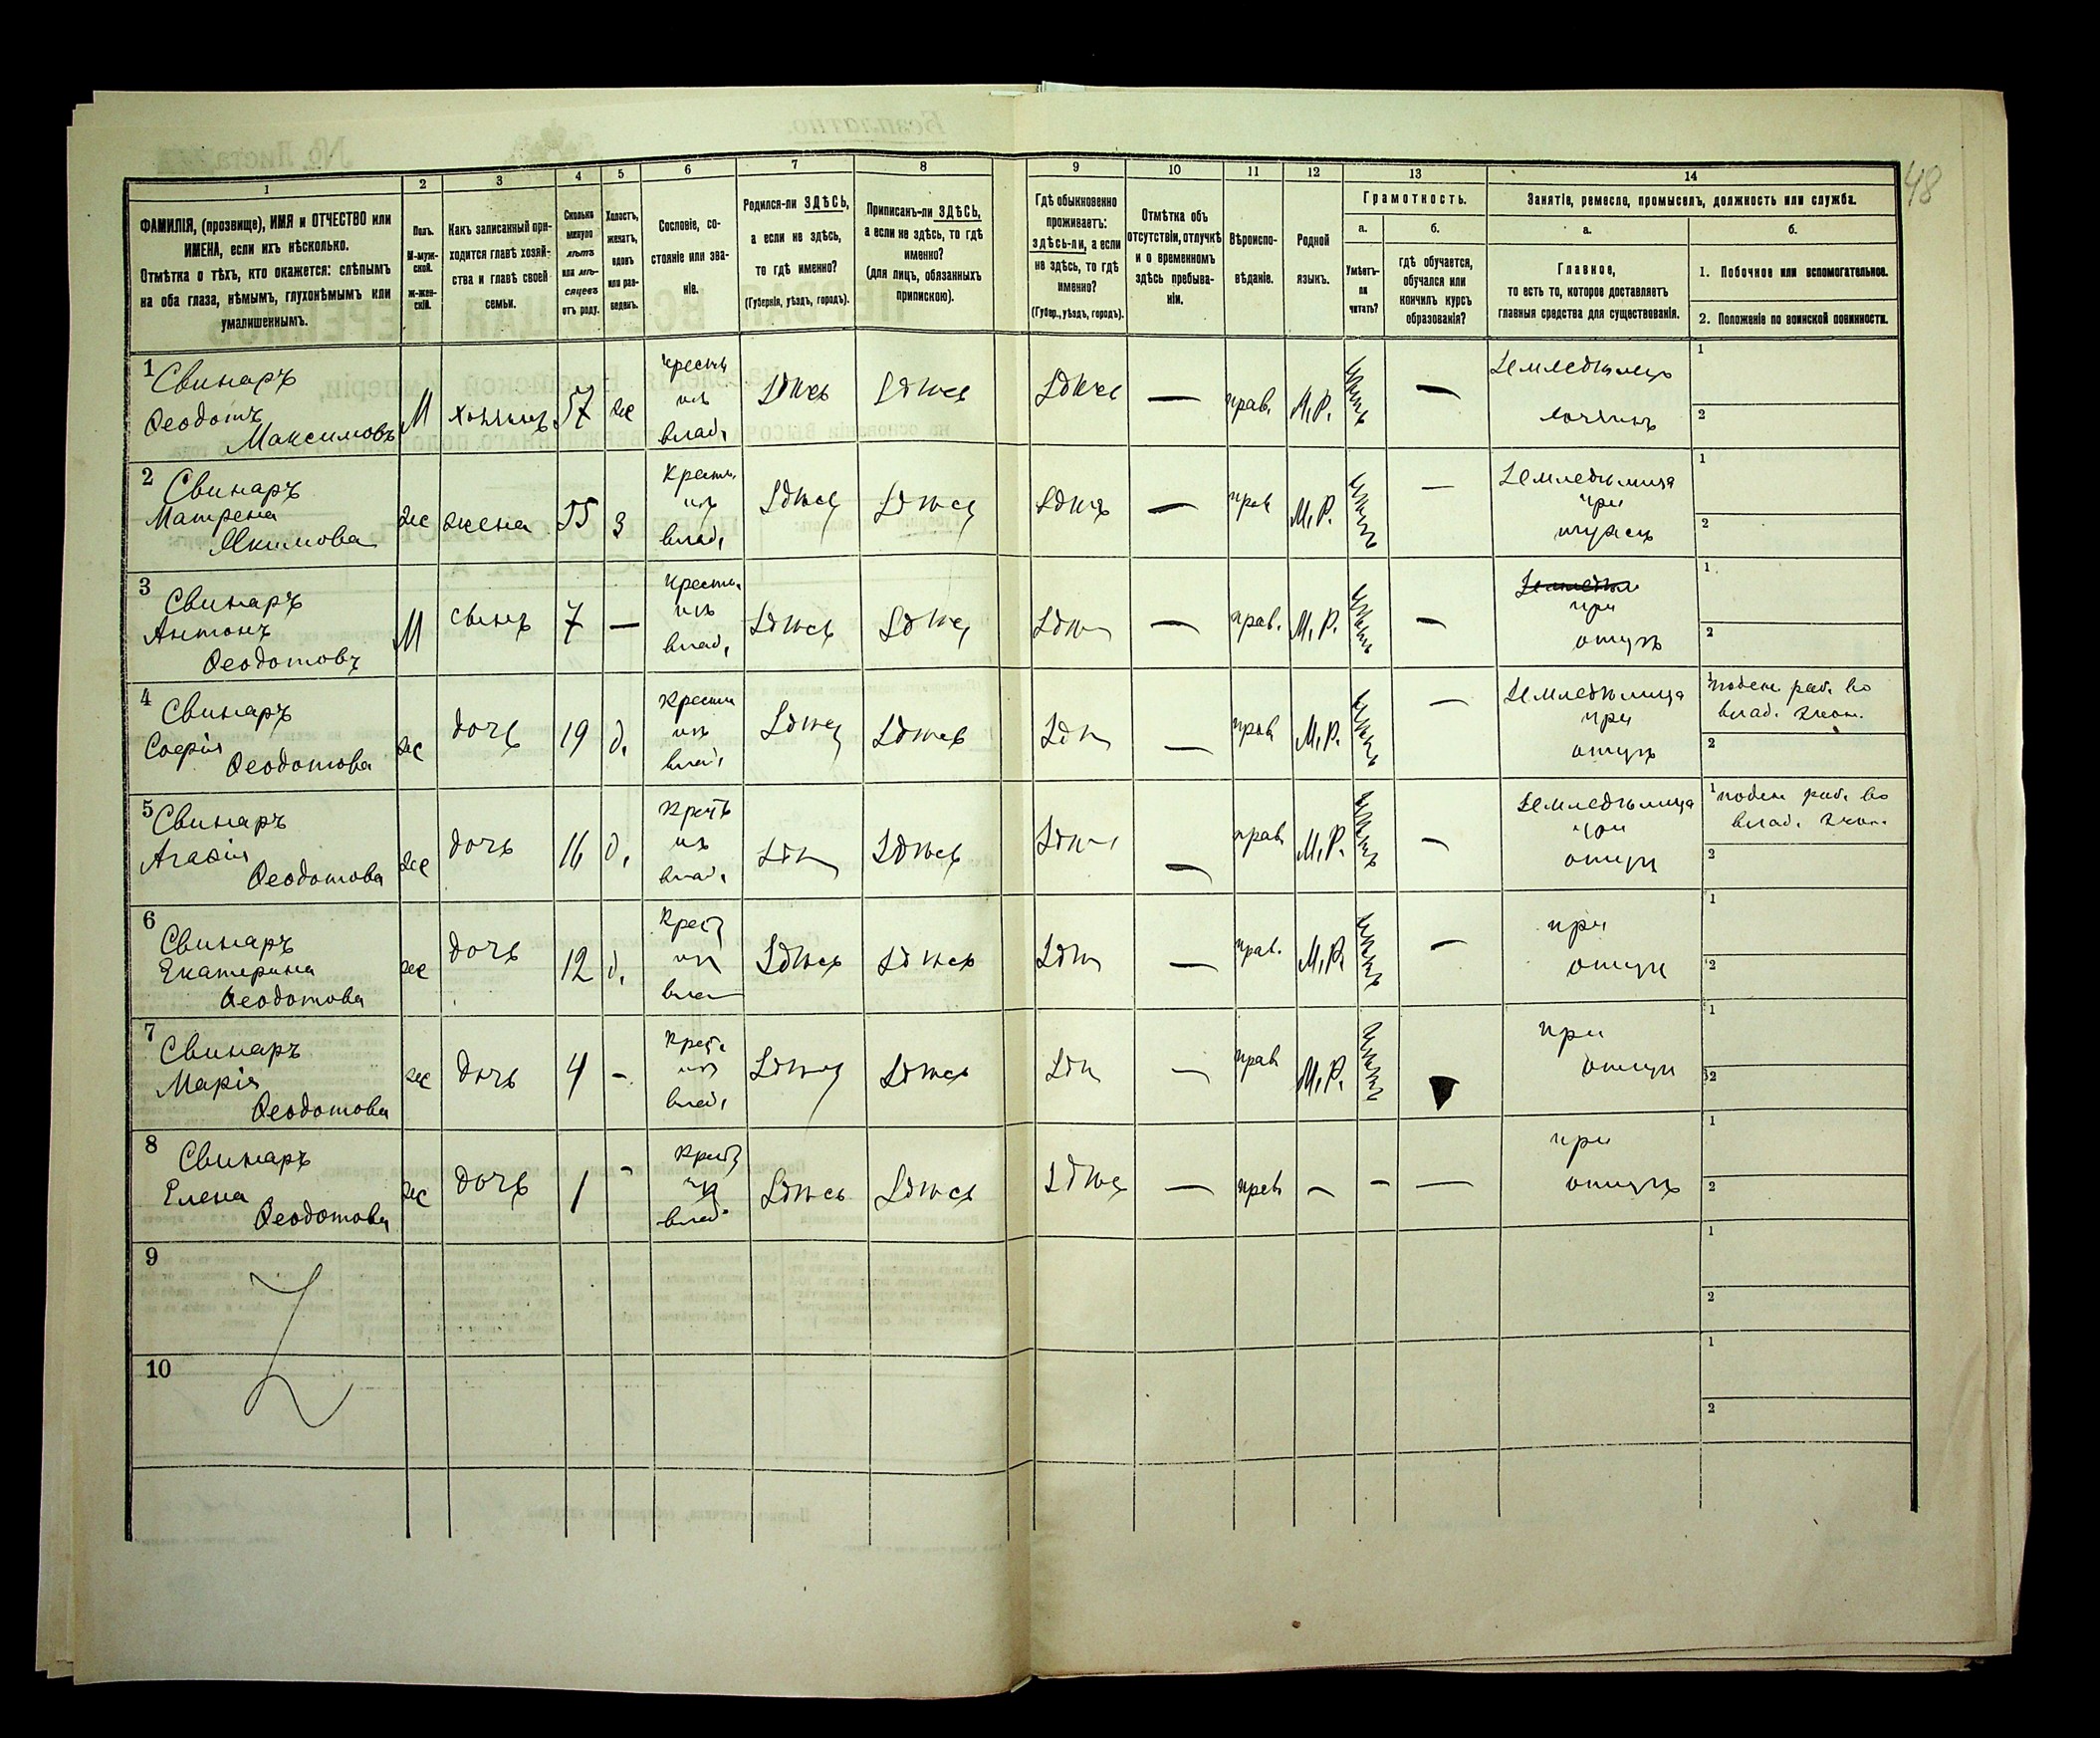 48
1
2
3
4
5
6
7
8
9
10
11
12
13
14
ФАМИЛІЯ, (прозвище), ИМЯ и ОТЧЕСТВО или
ИМЕНА, если ихъ нѣсколько.
Отмѣтка о тѣхъ, кто окажется: слѣпымъ
на оба глаза, нѣмымъ, глухонѣмымъ или
умалишеннымъ.
Полъ.
М-муж-
ской.
ж-жен-
скій.
Какъ записанный при-
ходится главѣ хозяй-
ства и главѣ своей
семьи.
Сколько
минуло
лѣтъ
или мѣ-
сяцевъ
отъ роду.
Холостъ,
женатъ,
вдовъ
или раз-
веденъ.
Сословіе, со-
стояніе или зва-
ніе.
Родился-ли ЗДѢСЬ,
а если не здѣсь,
то гдѣ именно?
(Губернія, уѣздъ, городъ).
Приписанъ-ли ЗДѢСЬ,
а если не здѣсь, то гдѣ
именно?
(для лицъ, обязанныхъ
припискою).
Гдѣ обыкновенно
проживаетъ:
здѣсь-ли, а если
не здѣсь, то гдѣ
именно?
(Губер., уѣздъ, городъ).
Отмѣтка объ
отсутствіи, отлучкѣ
и о временномъ
здѣсь пребыва-
ніи.
Вѣроиспо-
вѣданіе.
Родной
языкъ.
Грамотность.
а.
Умѣетъ-
ли
читать?
б.
гдѣ обучается,
обучался или
кончилъ курсъ
образованія?
Занятіе, ремесло, промыселъ, должность или служба.
а.
Главное,
то есть то, которое доставляетъ
главныя средства для существованія.
б.
1. Побочное или вспомогательное.
2. Положеніе по воинской повинности.
1 Свинаръ
Феодотъ
Максимовъ
М
хозяинъ
57
же
крестьян
изъ
влад.
Здѣсь
Здѣсь
Здѣсь
—
прав.
М.Р.
нѣтъ
—
Земледѣлецъ
хозяинъ
1
2
2 Свинаръ
Матрена
Якимова
же
жена
55
З
Крест.
изъ
влад.
Здѣсь
Здѣсь
Здѣсь
—
прав
М.Р.
нѣтъ
—
Земледѣлица
при
мужѣ
1
2
3 Свинаръ
Антонъ
Феодотовъ
М
сынъ
7
—
Крест.
изъ
влад.
Здѣсь
Здѣсь
Здѣсь
—
прав.
М.Р.
нѣтъ
—
при
отцѣ
1
2
4 Свинаръ
Софія
Феодотова
же
дочь
19
д.
Крест
изъ
влад.
Здѣсь
Здѣсь
Здѣсь
—
прав
М.Р.
нѣтъ
—
Земледѣлица
при
отцѣ
1 поден раб. во
влад. экон.
2
5 Свинаръ
Агафія
Феодотова
же
дочь
16
д.
Крест
изъ
влад.
Здѣсь
Здѣсь
Здѣсь
—
прав
М.Р.
нѣтъ
—
Земледѣлица
при
отцѣ
1 поден раб. во
влад. экон.
2
6 Свинаръ
Екатерина
Феодотова
же
дочь
12
д.
Крест
изъ
влад
Здѣсь
Здѣсь
Здѣсь
—
прав.
М.Р.
нѣтъ
—
при
отцѣ
1
2
7 Свинаръ
Марія
Феодотова
же
дочь
4
-
Крест.
изъ
влад.
Здѣсь
Здѣсь
Здѣсь
—
прав
М.Р.
нѣтъ
при
отцѣ
1
2
8 Свинаръ
Елена
Феодотова
же
дочь
1
-
Крест
изъ
влад.
Здѣсь
Здѣсь
Здѣсь
—
прав
—
—
—
при
отцѣ
1
2
9
1
2
10
1
2